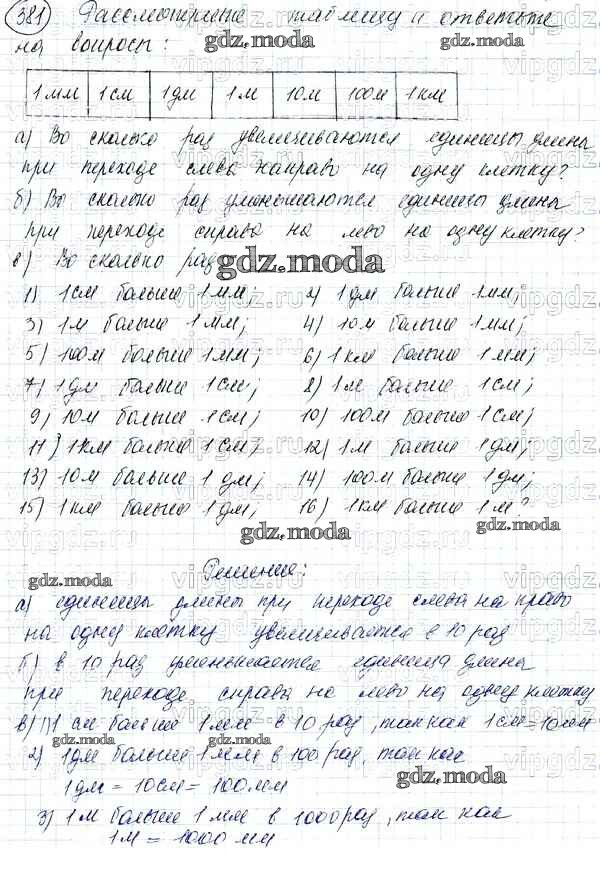 381 Рассмотрите таблицу и ответьте
на вопросы:
1 мм 1 см 1 дм 1 м 10м 100м 1 км
а) Во сколько раз увеличиваются единицы длины
при переходе слева направо на одну клетку?
б) Во сколько раз уменьшаются единицы длины
при переходе справа на лево на одну клетку?
в) Во сколько раз
gdz.moda
1) 1см больше 1мм; 2) 1дм больше 1мм;
3) 1м больше 1мм; 4) 10м больше 1мм;
5) 100м больше 1мм; 6) 1км больше 1мм;
7) 1дм больше 1см; 8) 1м больше 1см;
9) 10м больше 1см; 10) 100м больше 1см;
11) 1км больше 1см; 12) 1м больше 1дм;
13) 10м больше 1дм; 14) 100м больше 1дм;
15) 1км больше 1дм; 16) 1км больше 1м?
gdz.moda
Решение:
а) единицы длины при переходе слева на право
на одну клетку увеличивается в 10 раз
б) в 10 раз уменьшается единица длины
при переходе справа на лево на одну клетку
в) 1) 1 см больше 1мм в 10 раз, так как 1см=10мм
2) 1дм больше 1мм в 100 раз, так как
1дм = 10см = 100мм
3) 1м больше 1мм в 1000 раз, так как
1м = 1000 мм